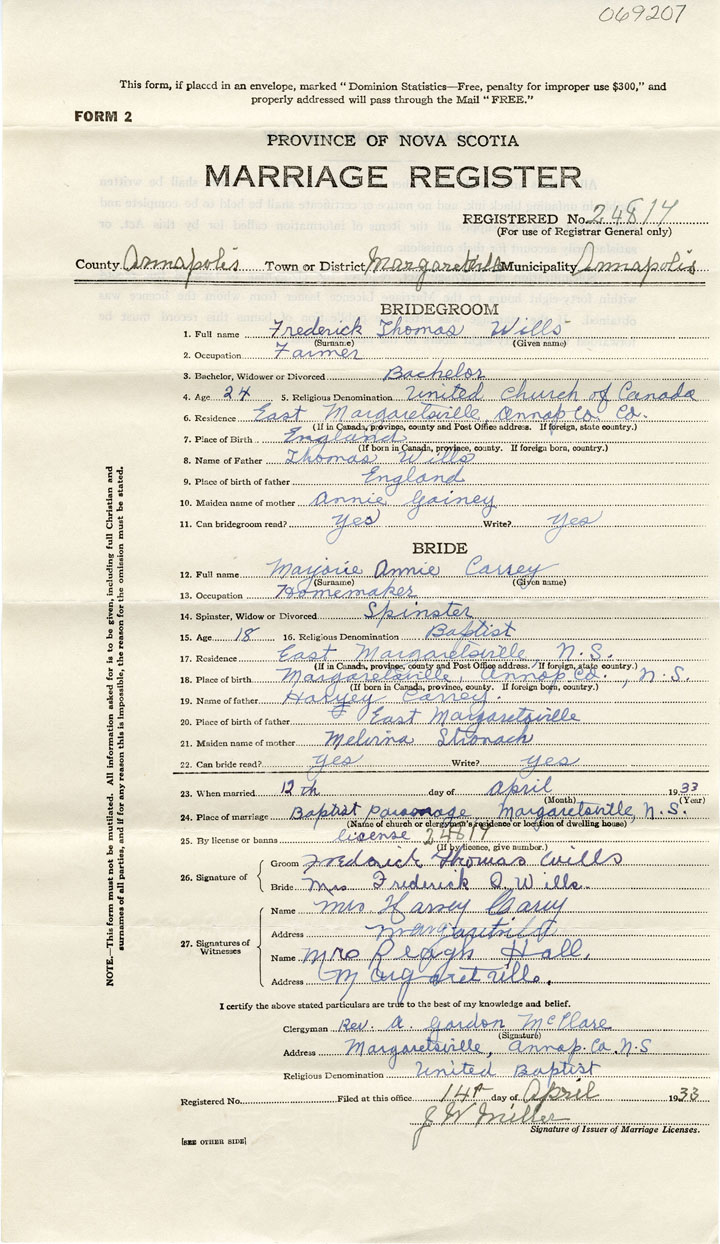 069207
This form, if placed in an envelope, marked "Dominion Statistics—Free, penalty for improper use $300," and
properly addressed will pass through the Mail "FREE."
FORM 2
PROVINCE OF NOVA SCOTIA
MARRIAGE REGISTER
REGISTERED No. 24814
(For use of Registrar General only)
County Annapolis Town or District Margaretville Municipality Annapolis
BRIDEGROOM
1. Full name Frederick Thomas Wills
(Surname) (Given name)
2. Occupation Farmer
3. Bachelor, Widower or Divorced Bachelor
4. Age 24 5. Religious Denomination United Church of Canada
6. Residence East Margaretsville, Annap Co. Co.
(If in Canada, province, county and Post Office address. If foreign, state country.)
7. Place of Birth England
(If born in Canada, province, county. If foreign born, country.)
8. Name of Father Thomas Wills
9. Place of birth of father England
10. Maiden name of mother Annie Gainey
11. Can bridegroom read? yes Write? yes
BRIDE
12. Full name Marjorie Annie Carrey
(Surname) (Given name)
13. Occupation Homemaker
14. Spinster, Widow or Divorced Spinster
15. Age 18 16. Religious Denomination Baptist
17. Residence East Margaretsville N.S.
(If in Canada, province, county and Post Office address. If foreign, state country.)
18. Place of birth Margaretsville, Annap Co., N.S.
(If born in Canada, province, county. If foreign born, country.)
19. Name of father Harvey Carrey.
20. Place of birth of father East Margaretsville
21. Maiden name of mother Melvina Stronach
22. Can bride read? yes Write? yes
23. When married 12th day of April 1933
(Month) (Year)
24. Place of marriage Baptist Parsonage Margaretsville, N.S.
(Name of church or clergyman's residence or location of dwelling house)
25. By license or banns license 24814
(If by licence, give number.)
26. Signature of
Groom Frederick Thomas Wills
Bride Mrs Frederick Wills.
27. Signatures of Witnesses
Name Mrs Harvey Carey
Address
Name Mrs Hall,
Address Margaretville.
I certify the above stated particulars are true to the best of my knowledge and belief.
Clergyman Rev. A. Gordon
(Signature)
Address Margaretsville, Annap. Co. N.S
Religious Denomination United Baptist
Registered No. Filed at this office 14th day of April 1933
J W Miller
Signature of Issuer of Marriage Licenses.
[SEE OTHER SIDE]
NOTE.—This form must not be mutilated. All information asked for is to be given, including full Christian and
surnames of all parties, and if for any reason this is impossible, the reason for the omission must be stated.